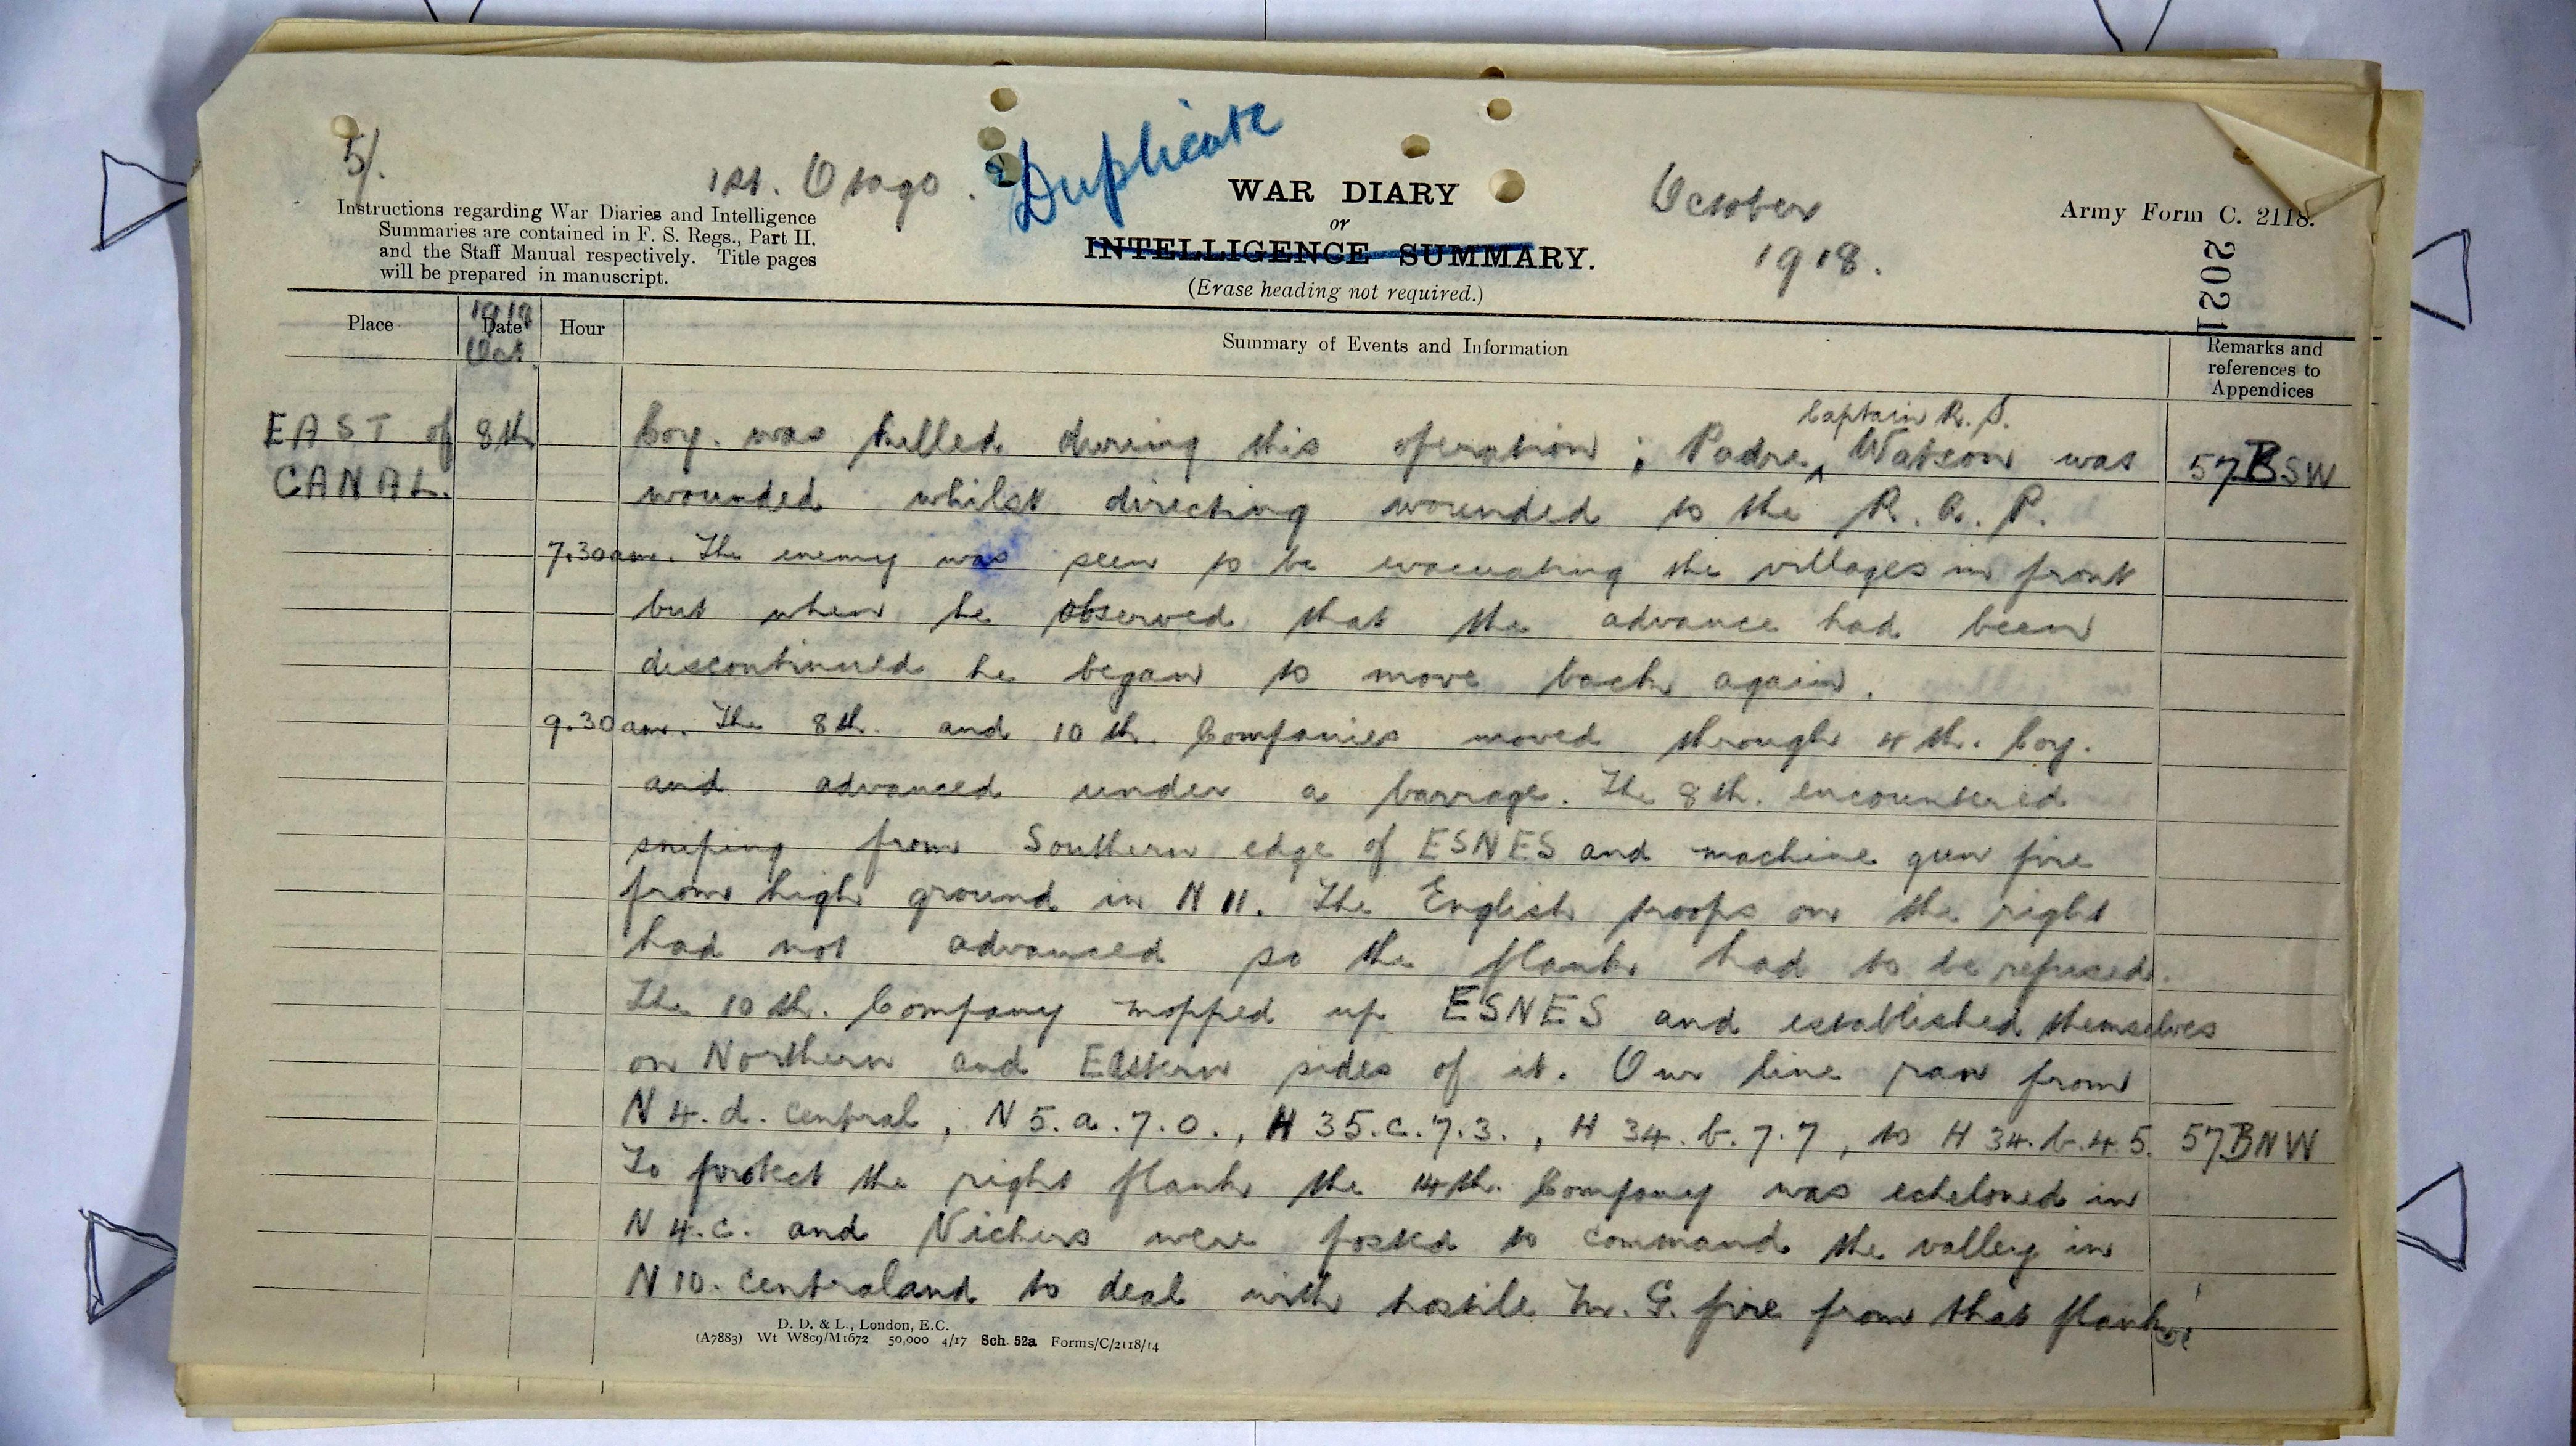 5/.
1st. Otago.
Duplicate
WAR DIARY
or
INTELLIGENCE SUMMARY.
(Erase heading not required.)
October
1918.
Army Form C. 2118.
2021
Instructions regarding War Diaries and Intelligence
Summaries are contained in F. S. Regs., Part II.
and the Staff Manual respectively. Title pages
will be prepared in manuscript.
Place
1918
Date
Oct.
Hour
Summary of Events and Information
Remarks and
references to
Appendices
Captain R. S.
EAST of 8th Coy. was killed during this operation; Padre ^ Watson was 57BSW
CANAL. wounded whilst directing wounded to the R. A. P.
7.30am. The enemy was seen to be evacuating the villages in front
but when he observed that the advance had been
discontinued he began to move back again.
9.30am. The 8th. and 10th. Companies moved through 4th. Coy.
and advanced under a barrage. The 8th. encountered
sniping from Southern edge of ESNES and machine gun fire
from high ground in N 11. The English troops on the right
had not advanced so the flank had to be refused.
The 10th. Company mopped up ESNES and established themselves
on Northern and Eastern sides of it. Our line ran from
N 4. d. central, N 5. a. 7. 0., H 35. c. 7. 3., H 34. b. 7. 7, to H 34. b. 4. 5. 57BNW
To protect the right flank the 14th. Company was echeloned in
N 4. c. and Vickers were posted to command the valley in
N 10. central and to deal with hostile M. G. fire from that flank
D. D. & L., London, E.C.
(A7883) Wt W8c9/M1672 50,000 4/17 Sch. 52a Forms/C/2118/14